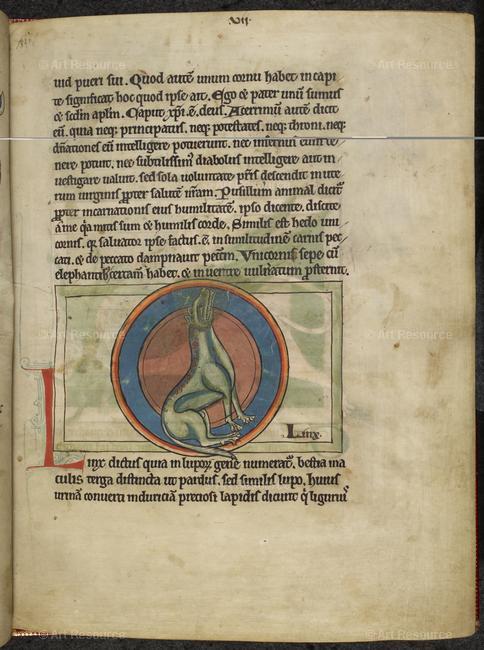 .VII.
© Art Resource
© Art Resource
uid pueri sui. Quod autē unum cornu habet in capi
te significat hoc quod ipse ait. Ego ⁊ pater unū sumus
Caput xp̄i ē deus. Acerrimū autē dicit
eū. quia neq; principatus. neq; potestates. neq; throni. neq;
dn̄ationes eū intelligere potuerunt. nec infernus
nere potuit. nec subtilissim᷒ diabolus intelligere aut in
uestigare ualuit. sed sola uoluntate pr̄is descendit in ute
rum uirginis ꝓpter salutē n̄ram. Pusillum animal dicit᷑
ꝓpter incarnationis eius humilitatē. ipso dicente. discite
a me q̄a mitis sum ⁊ humilis corde. Similis est hedo uni
cornis. saluator ipse factus. ē. in similitudinē carnis pec
cati. ⁊ de peccato dampnauit peccm̄. Vnicornis sepe cū
elephantis certam̄ habet. ⁊ in uentre uulneratum ꝓsternit.
© Art Resource
© Art Resource
Linx.
Linx dictus quia in lupoꝝ gene numerat᷑. bestia ma
culis terga distincta ut pardus. sed similis lupo. huius
urinā conuerti in duriciā preciosi lapidis dicunt q̄ ligurius
© Art Resource
© Art Resource